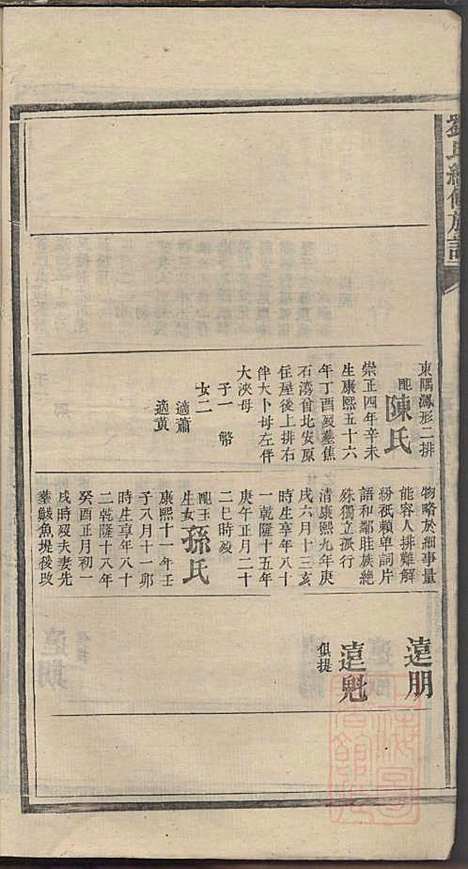 氏續修族譜
東隅鳳形二排
配陳氏
崇正四年辛未
生康熙五十六
年丁酉歿墓焦
石灣曾北安原
任屋後上排右
伴大卜母左伴
大浹母
子一 幣
女二
適蕭
適黃
物略於細事量
能容人排難解
紛祇賴單詞片
語和鄰睦族絕
殊獨立孤行
清康熙九年庚
戌六月十三亥
時生享年八十
一乾隆十五年
庚午正月二十
二巳時歿
配王孫氏
生女
康熙十一年壬
子八月十一卯
時生享年八十
二乾隆十八年
癸酉正月初一
戌時歿夫妻先
葬鼓魚堤後改
遠朋
遠魁
俱提